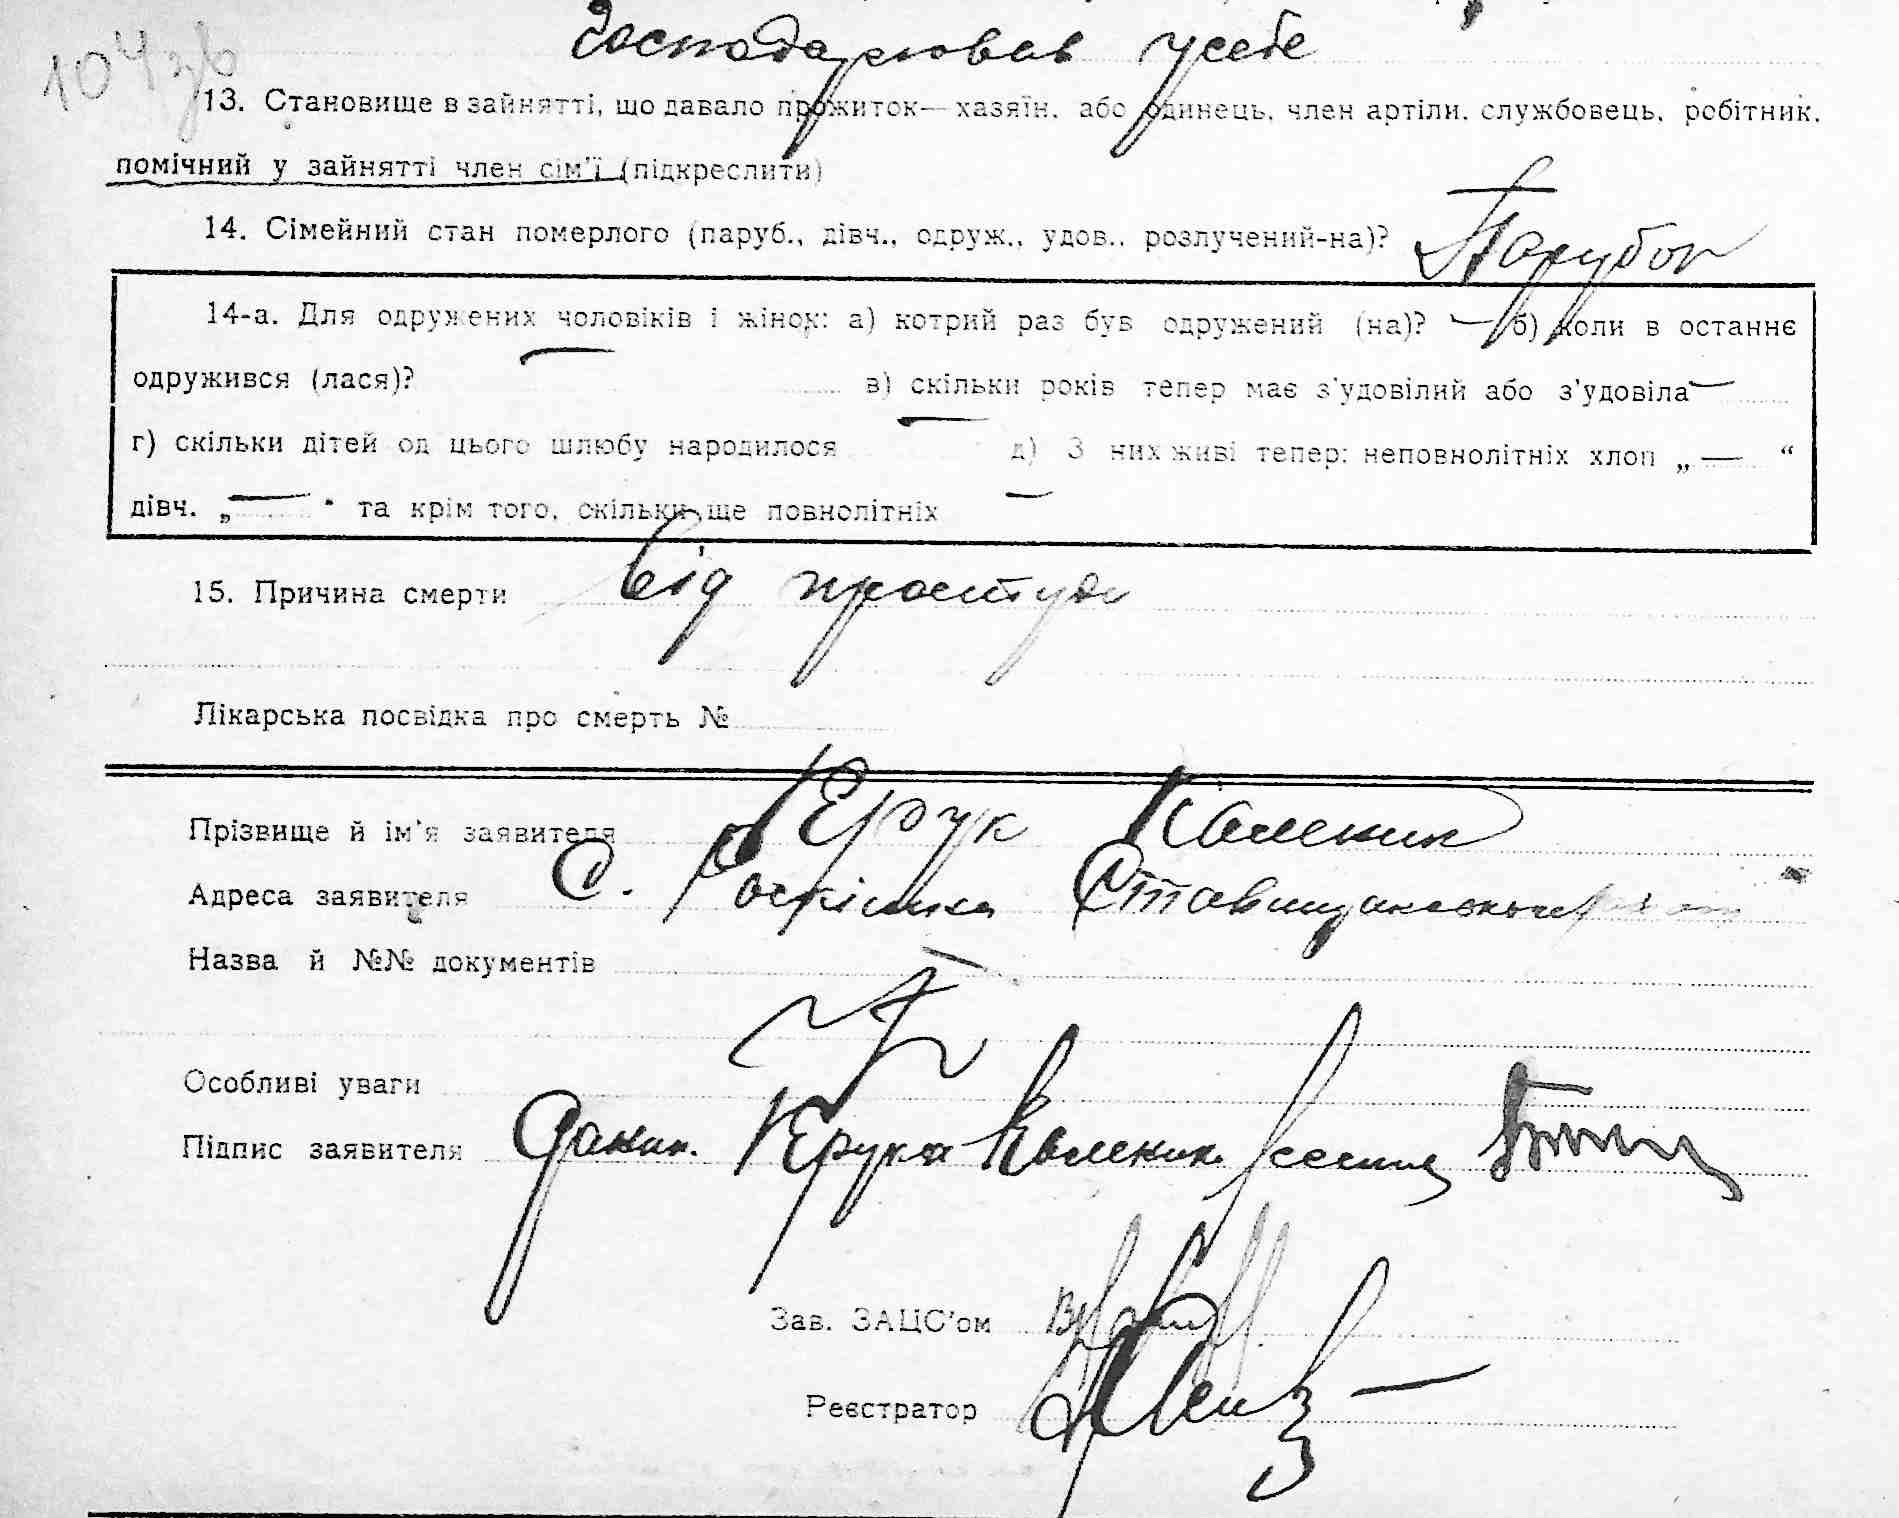 Господарював у себе
104 зв
13. Становище в зайнятті, що давало прожиток — хазяїн, або одинець, член артіли, службовець, робітник,
помічний у зайнятті член сім'ї (підкреслити)
14. Сімейний стан померлого (паруб., дівч., одруж., удов., розлучений-на)? Парубок
14-а. Для одружених чоловіків і жінок: а) котрий раз був одружений (на)? — б) коли в останнє
одружився (лася)? — в) скільки років тепер має з'удовілий або з'удовіла —
г) скільки дітей од цього шлюбу народилося — д) З них живі тепер: неповнолітніх хлоп „ — “
дівч. „ — “ та крім того, скільки ще повнолітніх —
15. Причина смерти Від простуди
Лікарська посвідка про смерть №
Прізвище й ім'я заявителя Крук Каленик
Адреса заявителя С. Розкішна Ставищанського
Назва й №№ документів
Особливі уваги
Підпис заявителя Крука Каленик
Зав. ЗАЦС'ом
Реєстратор